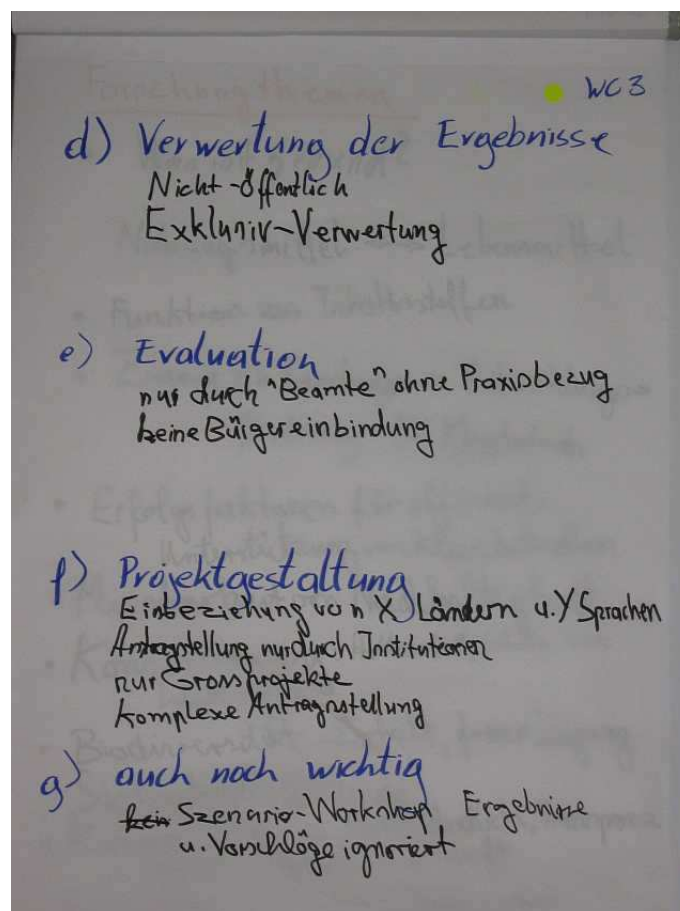 WC3
d) Verwertung der Ergebnisse
Nicht-Öffentlich
Exklusiv-Verwertung
e) Evaluation
nur durch "Beamte" ohne Praxisbezug
keine Bürgereinbindung
f) Projektgestaltung
Einbeziehung von X Ländern u. Y Sprachen
Antragstellung nur durch Institutionen
nur Grossprojekte
komplexe Antragsstellung
g) auch noch wichtig
kein Szenario-Workshop Ergebnisse
u. Vorschläge ignoriert